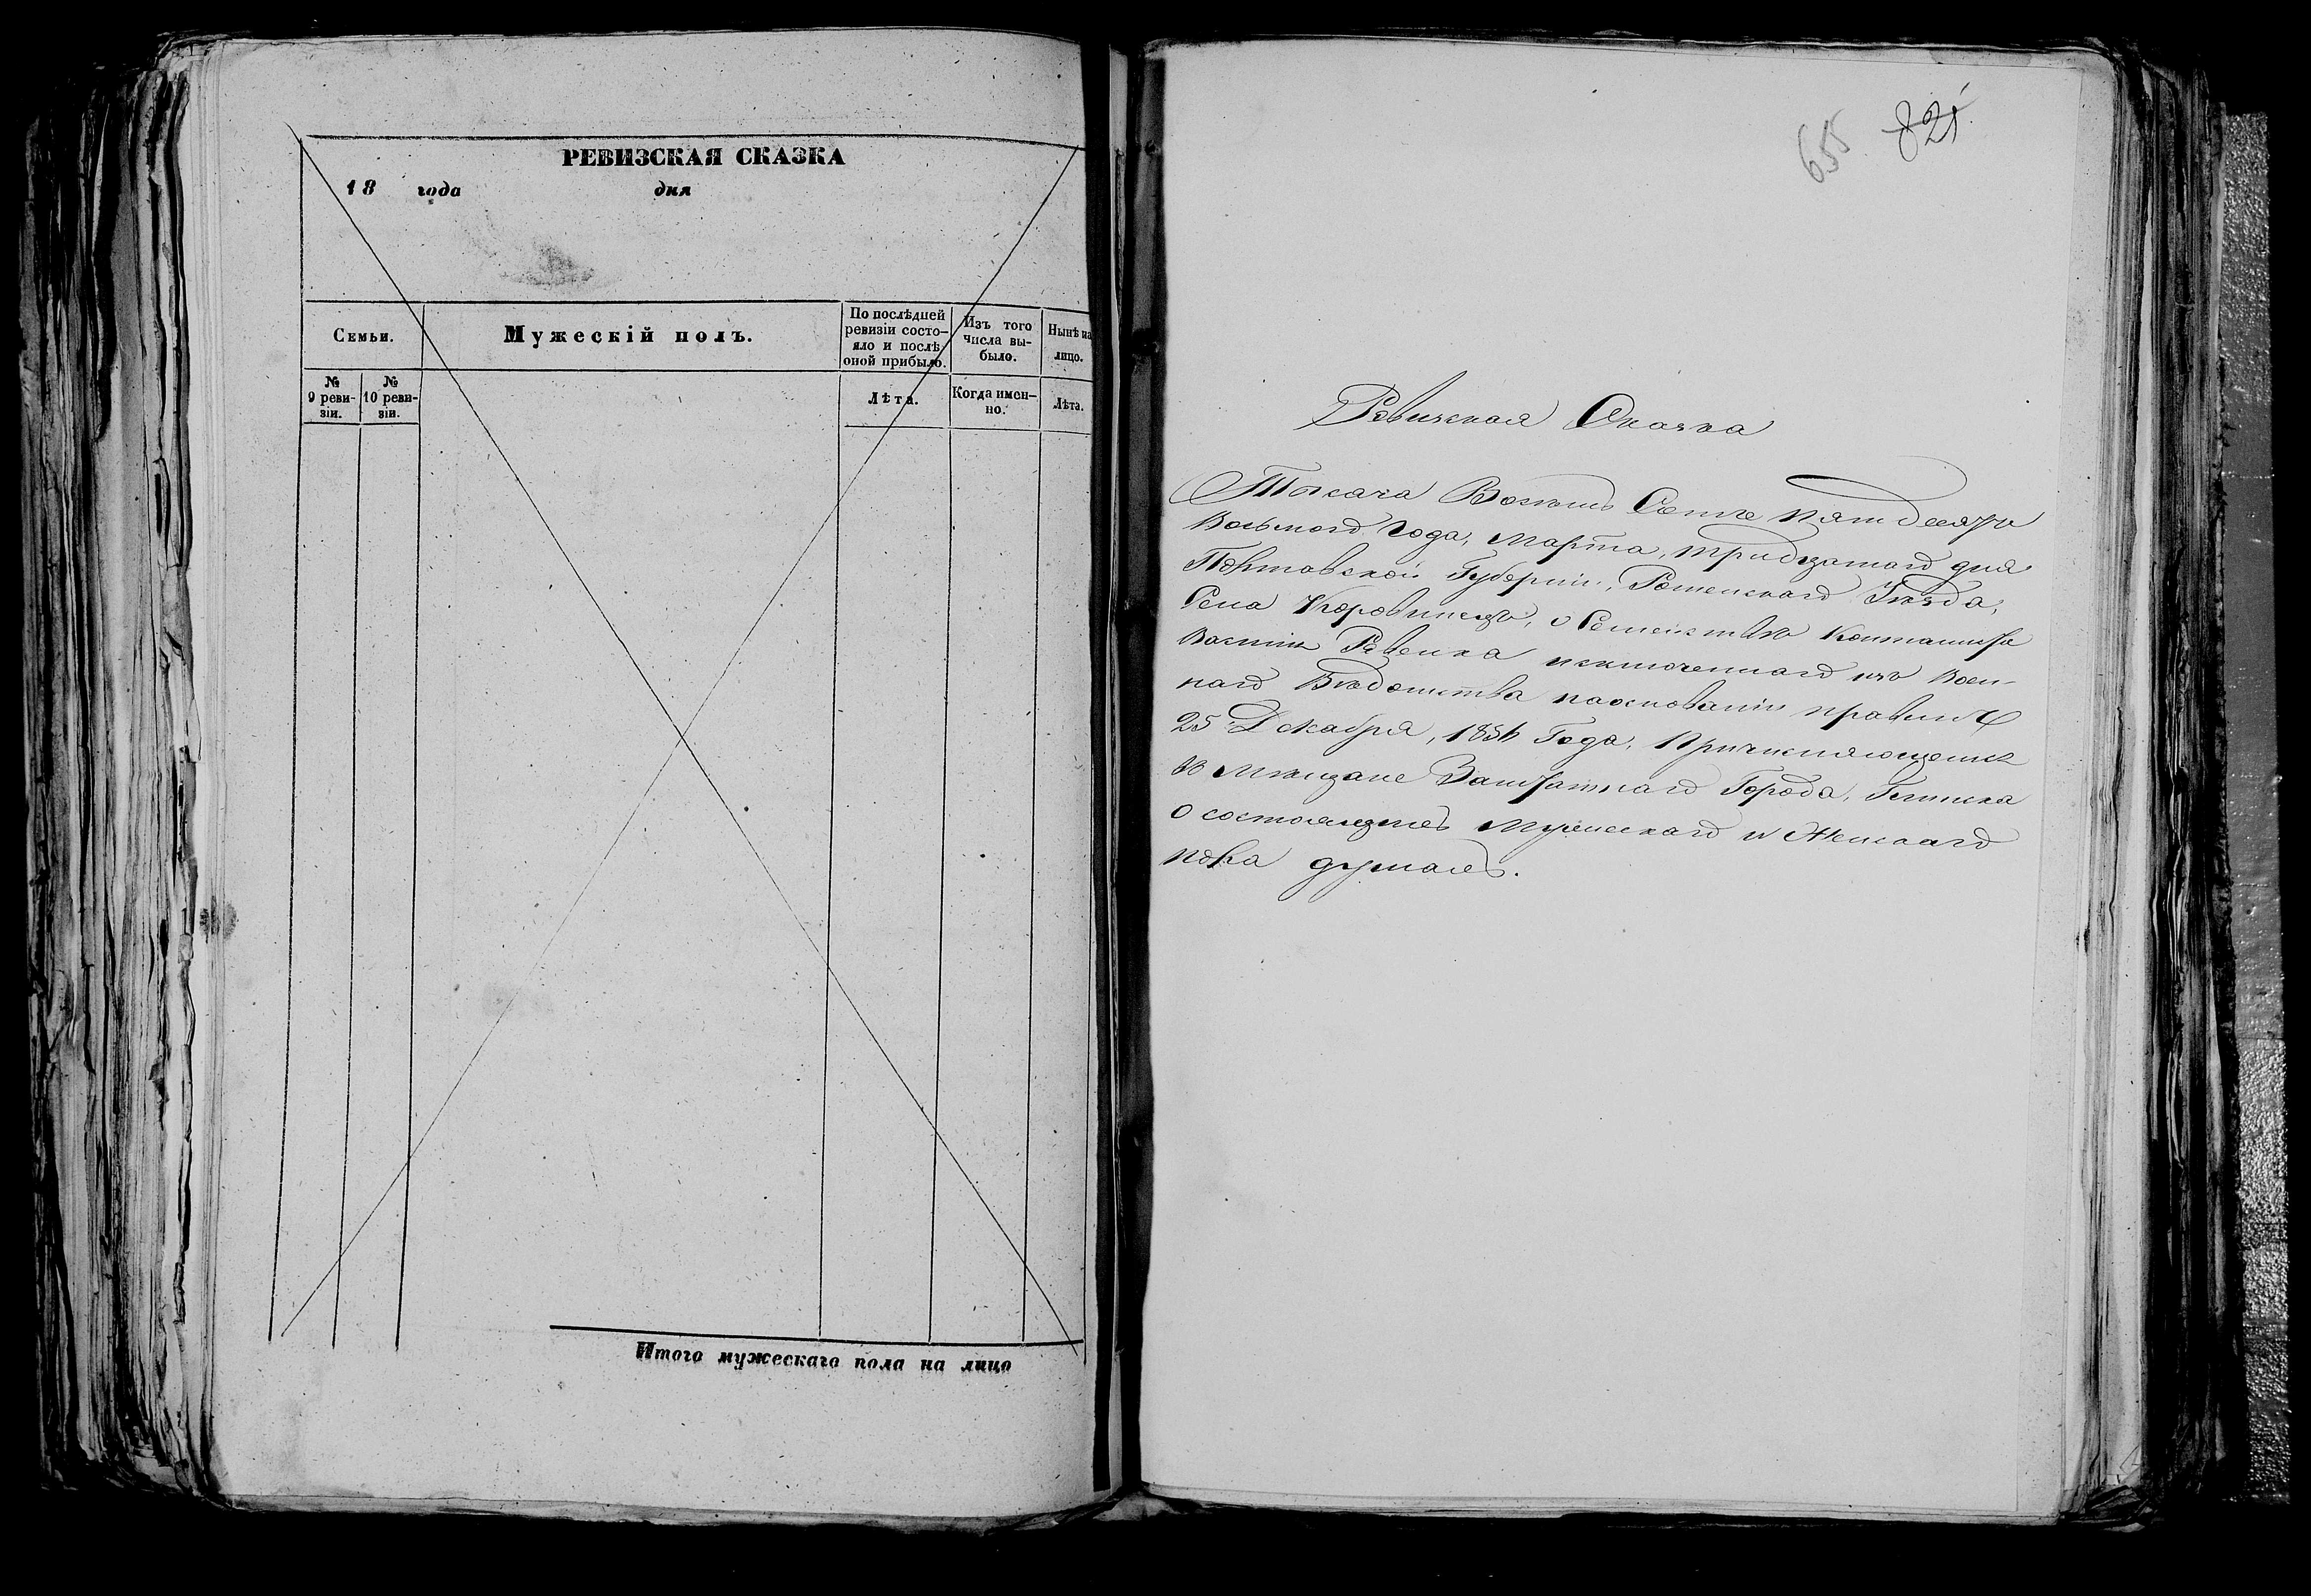 РЕВИЗСКАЯ СКАЗКА
18 года дня
Семьи.
Мужескій полъ.
По послѣдней ревизіи состо-
яло и послѣ оной прибыло.
Изъ того числа вы-
было.
Нынѣ на лицо.
№ 9 реви-
зіи.
№ 10 реви-
зіи.
Лѣта.
Когда имен-
но.
Лѣта.
Итого мужескаго пола на лицо
655 821
Ревизская Сказка
Тысяча Восемь Сотъ пятдесятъ
Восьмого Года, Марта, тридцатаго дня
Полтавской Губерніи, Роменскаго Уѣзда,
Села Коровинецъ, о Семействѣ
Ревенка исключеннаго изъ Воен-
наго Вѣдомства на основаніи правилъ
25 Декабря, 1856 Года, Причисляющемся
въ Мѣщане Заштатнаго Города, Глинска
о состоящихъ Мужескаго и Женскаго
пола душахъ.